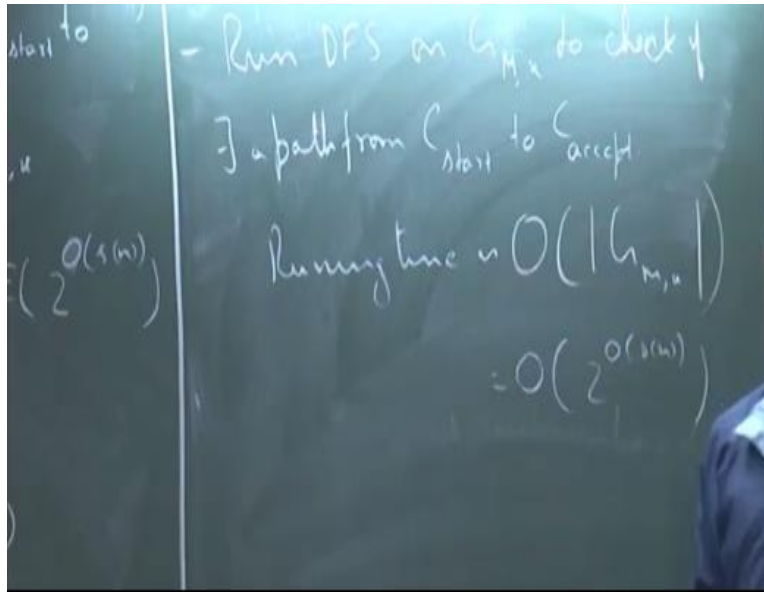 start to
, x
E( 2^O(s(n)) )
)
- Run DFS on G_M,x to check if
∃ a path from C_start to C_accept.
Running time is O(|G_M,x|)
= O( 2^O(s(n)) )